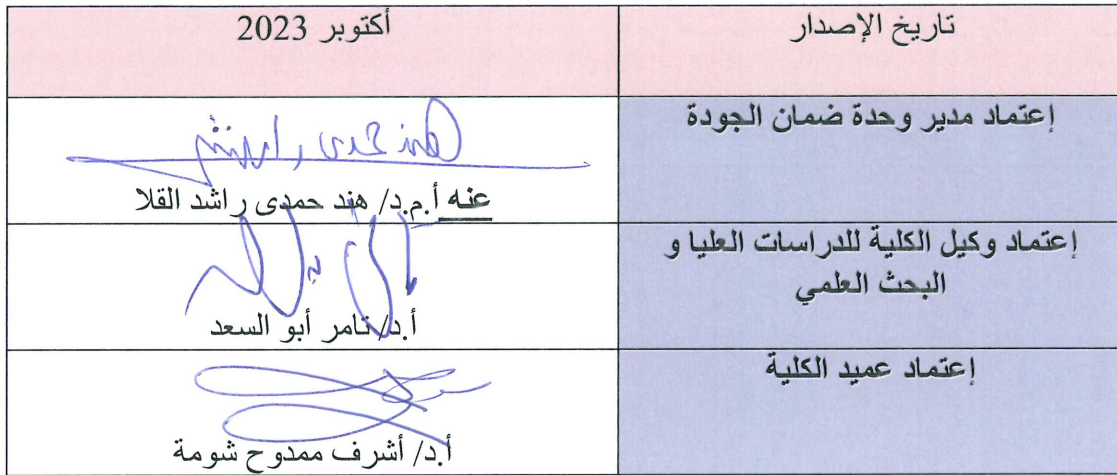 تاريخ الإصدار
أكتوبر 2023
إعتماد مدير وحدة ضمان الجودة
هند حمدى راشد
عنه أ.م.د/ هند حمدى راشد القلا
إعتماد وكيل الكلية للدراسات العليا و
البحث العلمي
أ.د/ تامر أبو السعد
إعتماد عميد الكلية
أ.د/ أشرف ممدوح شومة